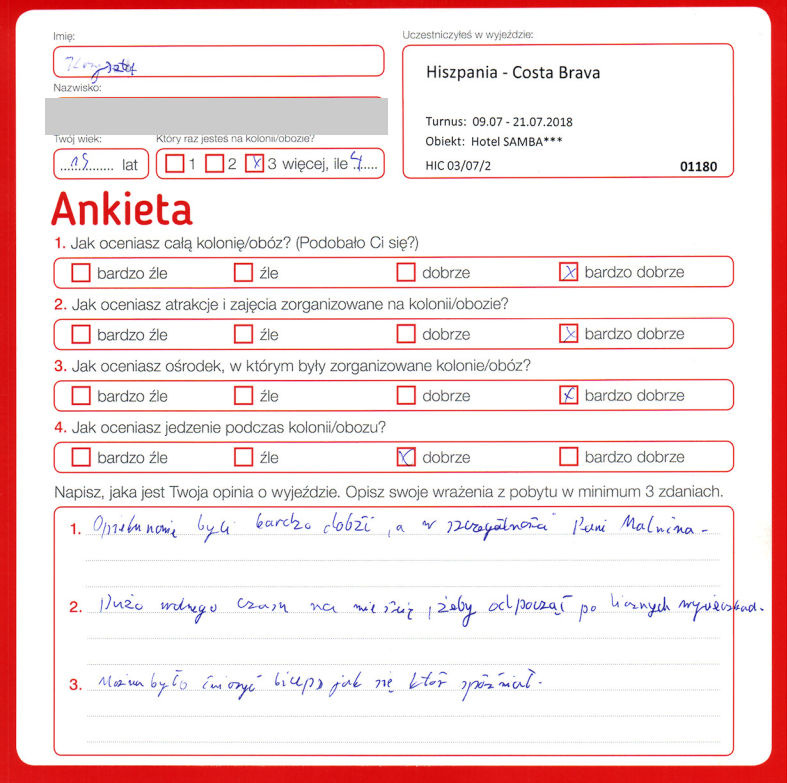 Imię:
Krzysztof
Uczestniczyłeś w wyjeździe:
Hiszpania - Costa Brava
Nazwisko:
Turnus: 09.07 - 21.07.2018
Obiekt: Hotel SAMBA***
HIC 03/07/2 01180
Twój wiek: Który raz jesteś na kolonii/obozie?
15 lat 1 2 x 3 więcej, ile 4
Ankieta
1. Jak oceniasz całą kolonię/obóz? (Podobało Ci się?)
bardzo źle źle dobrze x bardzo dobrze
2. Jak oceniasz atrakcje i zajęcia zorganizowane na kolonii/obozie?
bardzo źle źle dobrze x bardzo dobrze
3. Jak oceniasz ośrodek, w którym były zorganizowane kolonie/obóz?
bardzo źle źle dobrze x bardzo dobrze
4. Jak oceniasz jedzenie podczas kolonii/obozu?
bardzo źle źle x dobrze bardzo dobrze
Napisz, jaka jest Twoja opinia o wyjeździe. Opisz swoje wrażenia z pobytu w minimum 3 zdaniach.
1. byli bardzo , a w szczególności Pani Malwina.
2. Dużo wolnego czasu na , żeby odpocząć po licznych
3. Można było ćwiczyć biceps jak się ktoś spóźniał.